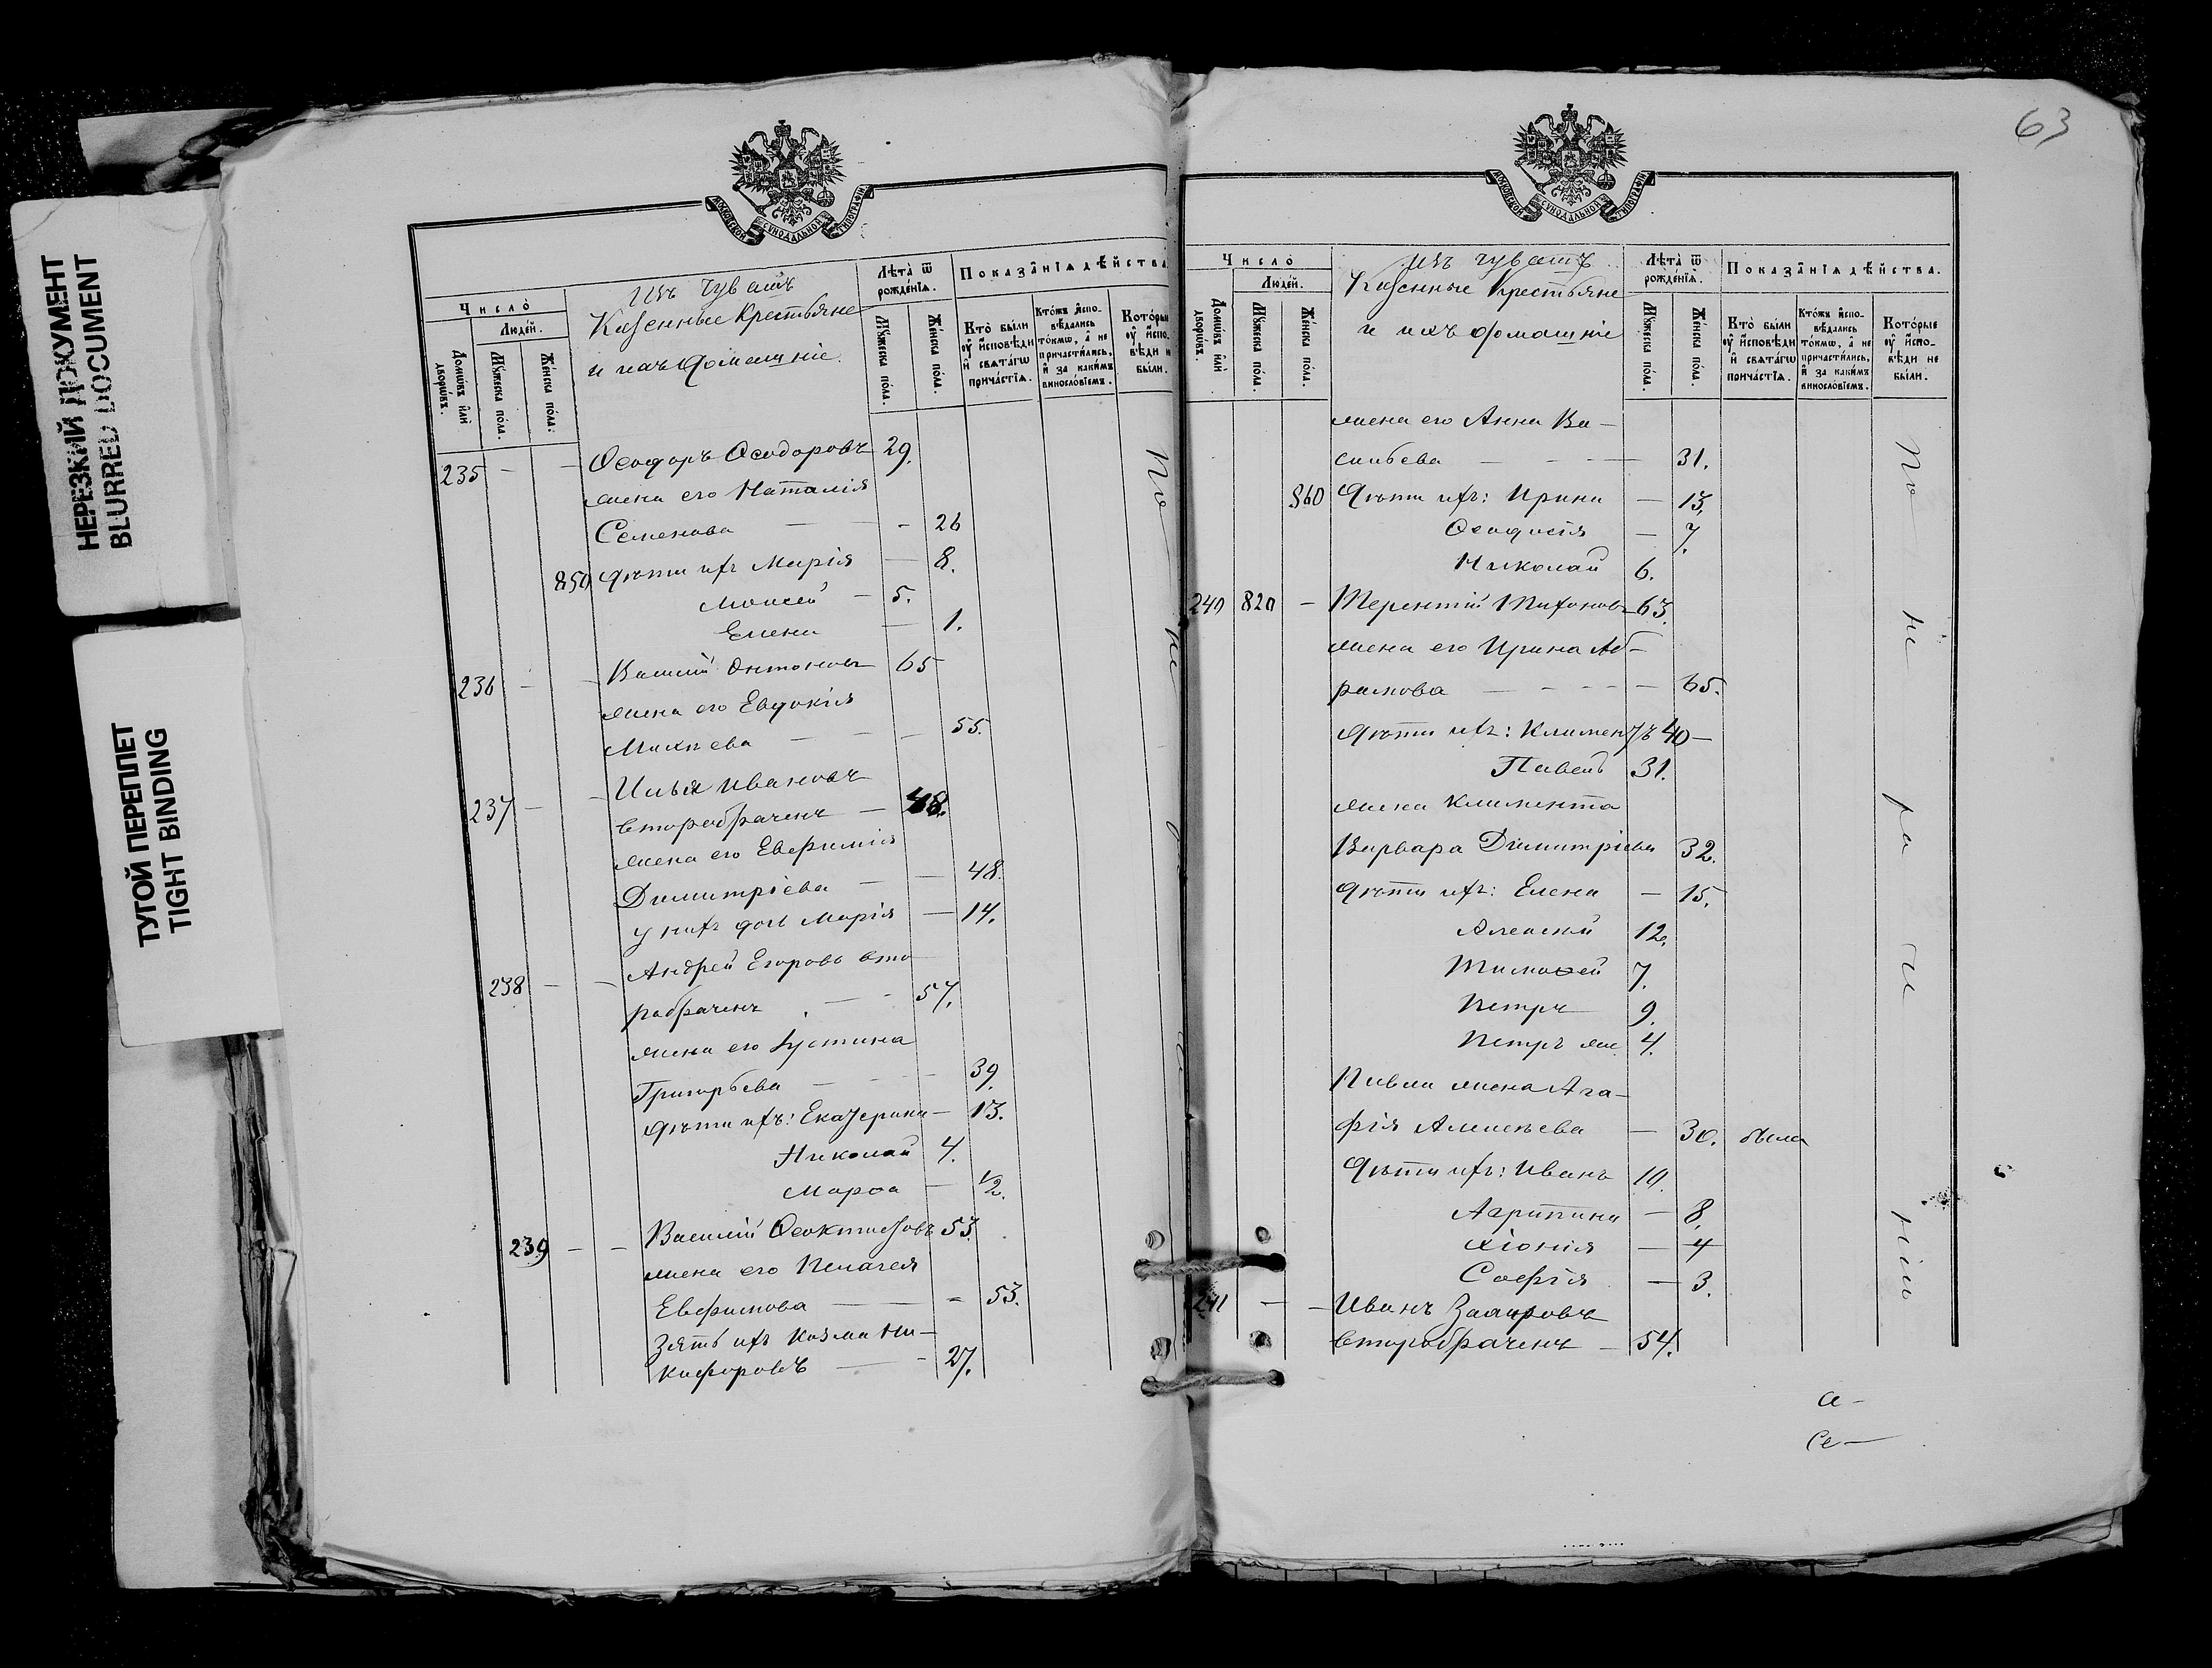 НЕРЕЗКИЙ ДОКУМЕНТ
BLURRED DOCUMENT
ТУГОЙ ПЕРЕПЛЕТ
TIGHT BINDING
МОСКОВСКОЙ СУНОДАЛЬНОЙ ТИПОГРАФІИ
Число̀
Люде́й.
Домѡ́въ и҆лѝ дворѡ́въ.
Мꙋ́жеска по́ла.
Же́нска по́ла.
Изъ Чувашъ
Казенные Крестьяне
и ихъ домашніе
Лѣ́та ѿ рожде́нїѧ.
Мꙋ́жеска по́ла.
Же́нска по́ла.
Показа̑нїѧ дѣ́йства
Кто̀ бы́ли оу҆ и҆сповѣ́ди и҆ свѧта́гѡ прича́стїѧ.
Кто́жъ и҆сповѣ́дались то́кмѡ, а҆ не причасти́лись, и҆ за каки́мъ винослові́емъ.
Кото́рые оу҆ и҆сповѣ́ди н
бы́ли.
235 — — Ѳеодоръ Ѳеодоровъ 29.
жена его Наталія
Семенова — - 26
850 дѣти ихъ Марія — 8.
Моисей — 5.
Елена — 1.
236 - - Василій Антоновъ 65
жена его Евдокія
Михѣева — — 55.
237 — - Илья Ивановъ
второбраченъ — 48.
жена его Евфимія
Димитріева — — 48.
у нихъ дочь Марія — 14.
238 — — Андрей Егоровъ вто
робраченъ — - 57.
жена его Іустина
Григорьева — - 39.
дѣти ихъ: Екатерина — 13.
Николай 4.
Марѳа — 1/2.
239 — — Василій Ѳеоктистовъ 53.
жена его Пелагея
Евфимова — - 53.
Зять ихъ Козма Ни-
кифоровъ — - 27.
По не
63
МОСКОВСКОЙ СУНОДАЛЬНОЙ ТИПОГРАФІИ
Число̀
Люде́й.
Домѡ́въ и҆лѝ дворѡ́въ.
Мꙋ́жеска по́ла.
Же́нска по́ла.
Изъ чувашъ
Казенные Крестьяне
и ихъ домашніе
Лѣ́та ѿ рожде́нїѧ.
Мꙋ́жеска по́ла.
Же́нска по́ла.
Показа̑нїѧ дѣ́йства.
Кто̀ бы́ли оу҆ и҆сповѣ́ди и҆ свѧта́гѡ прича́стїѧ.
Кто́жъ и҆сповѣ́дались то́кмѡ, а҆ не причасти́лись, и҆ за каки́мъ винослові́емъ.
Кото́рые оу҆ и҆сповѣ́ди не бы́ли.
жена его Анна Ва-
сильева — - - — 31.
860 Дѣти ихъ: Ирина — 13.
Ѳеодосія — 7.
Николай 6.
240 820 — Терентій Тихоновъ 63.
жена его Ирина Аб-
рамова — - - — 65.
дѣти ихъ: Климентъ 40 —
Павелъ 31.
жена Климента
Варвара Димитріева 32.
дѣти ихъ: Елена — 15.
Алексѣй 12.
Тимоѳей 7.
Петръ 9.
Петръ 4.
Павла жена Ага-
фія Алексѣева — 30. была
Дѣти ихъ: Иванъ 10.
Агрипина — 8.
Хіонія — 4
Софія — 3.
241 — — Иванъ
второбраченъ — 54.
По не ра нію